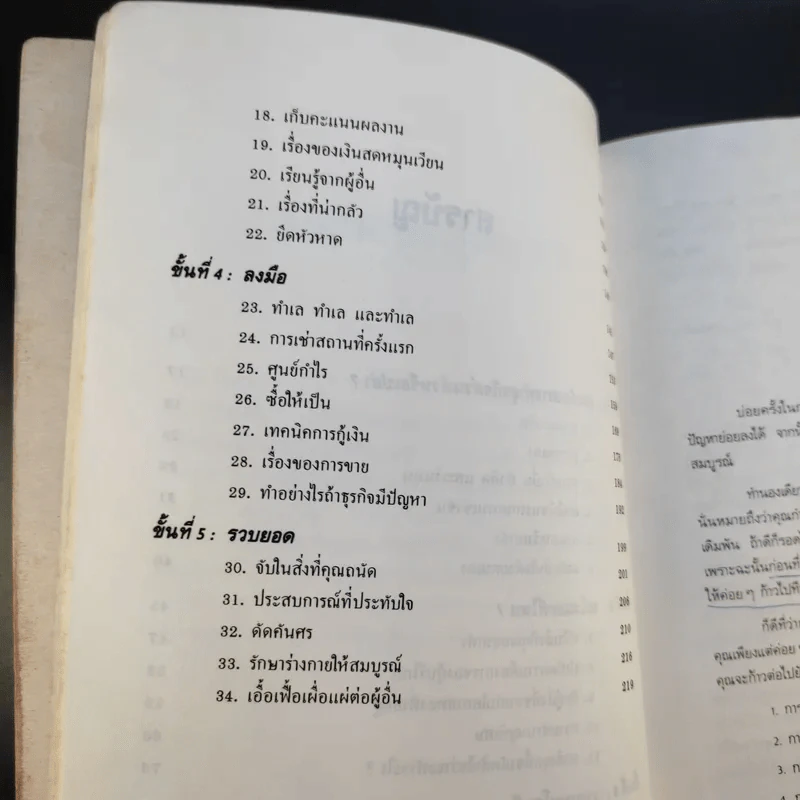 18. เก็บคะแนนผลงาน
19. เรื่องของเงินสดหมุนเวียน
20. เรียนรู้จากผู้อื่น
21. เรื่องที่น่ากลัว
22. ยึดหัวหาด
ขั้นที่ 4 : ลงมือ
23. ทำเล ทำเล และทำเล
24. การเช่าสถานที่ครั้งแรก
25. ศูนย์กำไร
26. ซื้อให้เป็น
27. เทคนิคการกู้เงิน
28. เรื่องของการขาย
29. ทำอย่างไรถ้าธุรกิจมีปัญหา
ขั้นที่ 5 : รวบยอด
30. จับในสิ่งที่คุณถนัด 201
31. ประสบการณ์ที่ประทับใจ 206
32. ดัดคันศร 210
33. รักษาร่างกายให้สมบูรณ์ 216
34. เอื้อเฟื้อเผื่อแผ่ต่อผู้อื่น 219
บ่อยครั้งใน
ปัญหาย่อยลงได้
สมบูรณ์
ทำนองเดีย
นั่นหมายถึงว่าคุณ
เดิมพัน ถ้าดีก็รอด
เพราะฉะนั้นก่อนที่
ให้ค่อย ๆ ก้าวไป
ก็ดีที่ว่า
คุณเพียงแต่ค่อย
คุณจะก้าวต่อไป
1. กา
2. กา
3. ก